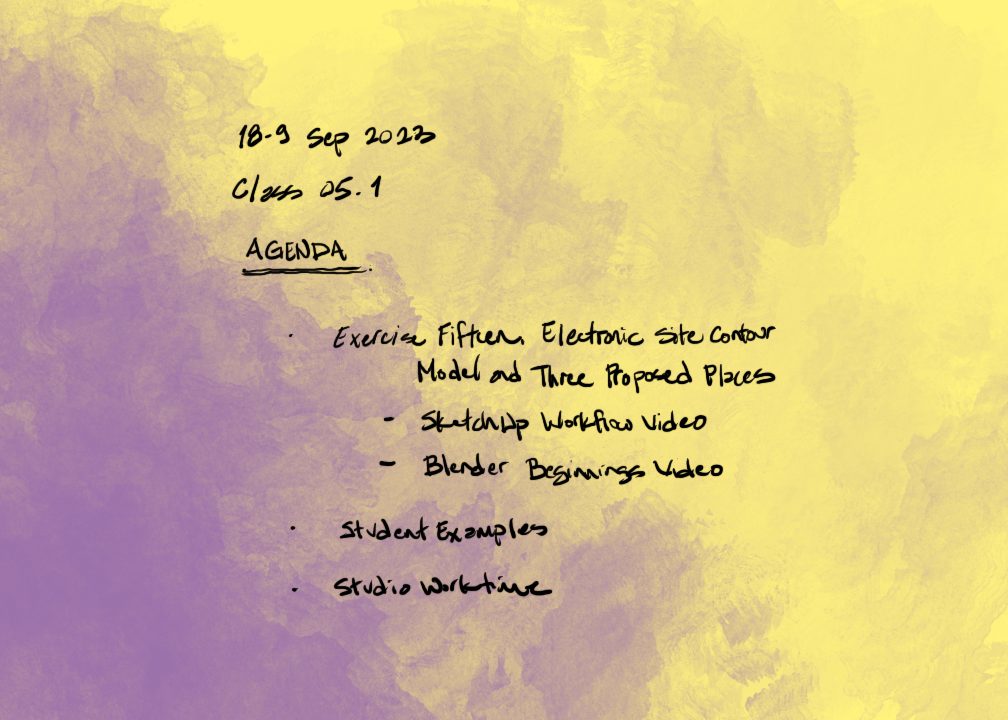 18-9 Sep 2023
Class 05.1
AGENDA
· Exercise Fifteen, Electronic Site Contour
Model and Three Proposed Places
- SketchUp Workflow Video
- Blender Beginnings Video
· Student Examples
· Studio Worktime